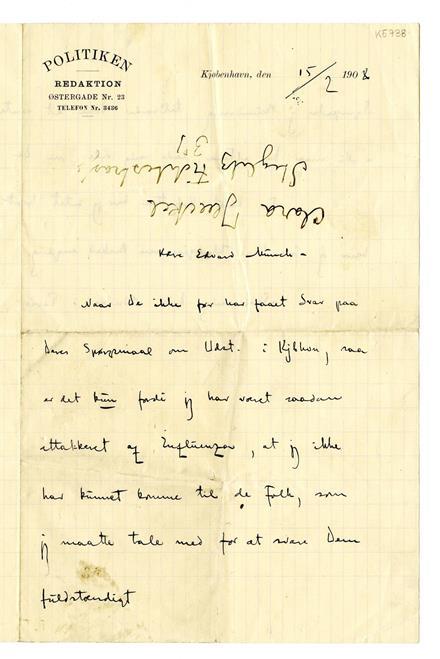 K5738
POLITIKEN
REDAKTION
ØSTERGADE Nr. 23
TELEFON Nr. 3436
Kjøbenhavn, den 15/2 1908
Clara
Steglitz
37
Kære Edvard Munch –
Naar De ikke før har faaet Svar paa
Deres Spørgsmaal om Udst. i Kjbhvn, saa
er det kun fordi jeg har været saadan
attakkeret af Influenza, at jeg ikke
har kunnet komme til de Folk, som
jeg maatte tale med for at svare Dem
fuldstændigt